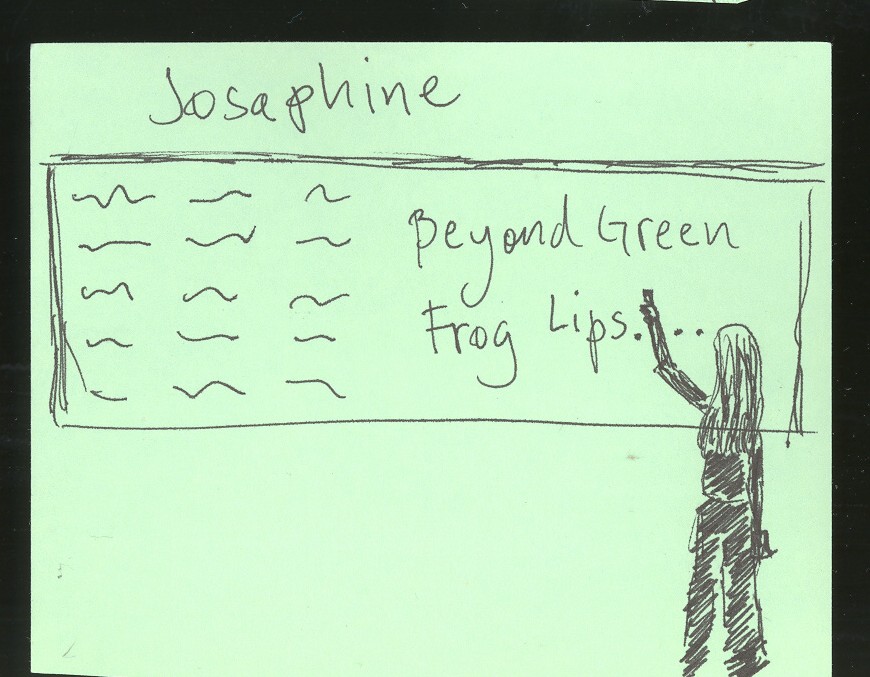 Josaphine
Beyond Green
Frog Lips....